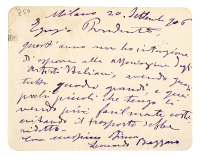 Milano 20. Settembre 906
Egregio Presidente
quest'anno non ho intenzione
di esporre alla esposizione degli
Artisti Italiani, avendo
tutti quadri grandi, e quei
pochi piccoli che tengo li
vendo più facilmente costì
evitando il trasporto ed
ridotto.
Con massima stima
Leonardo Bazzaro